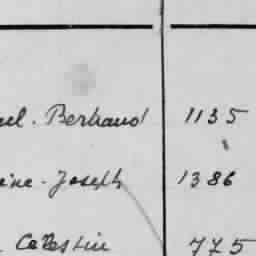 uel. Bertrand 1135
ine. Joseph 1386
Célestin 775